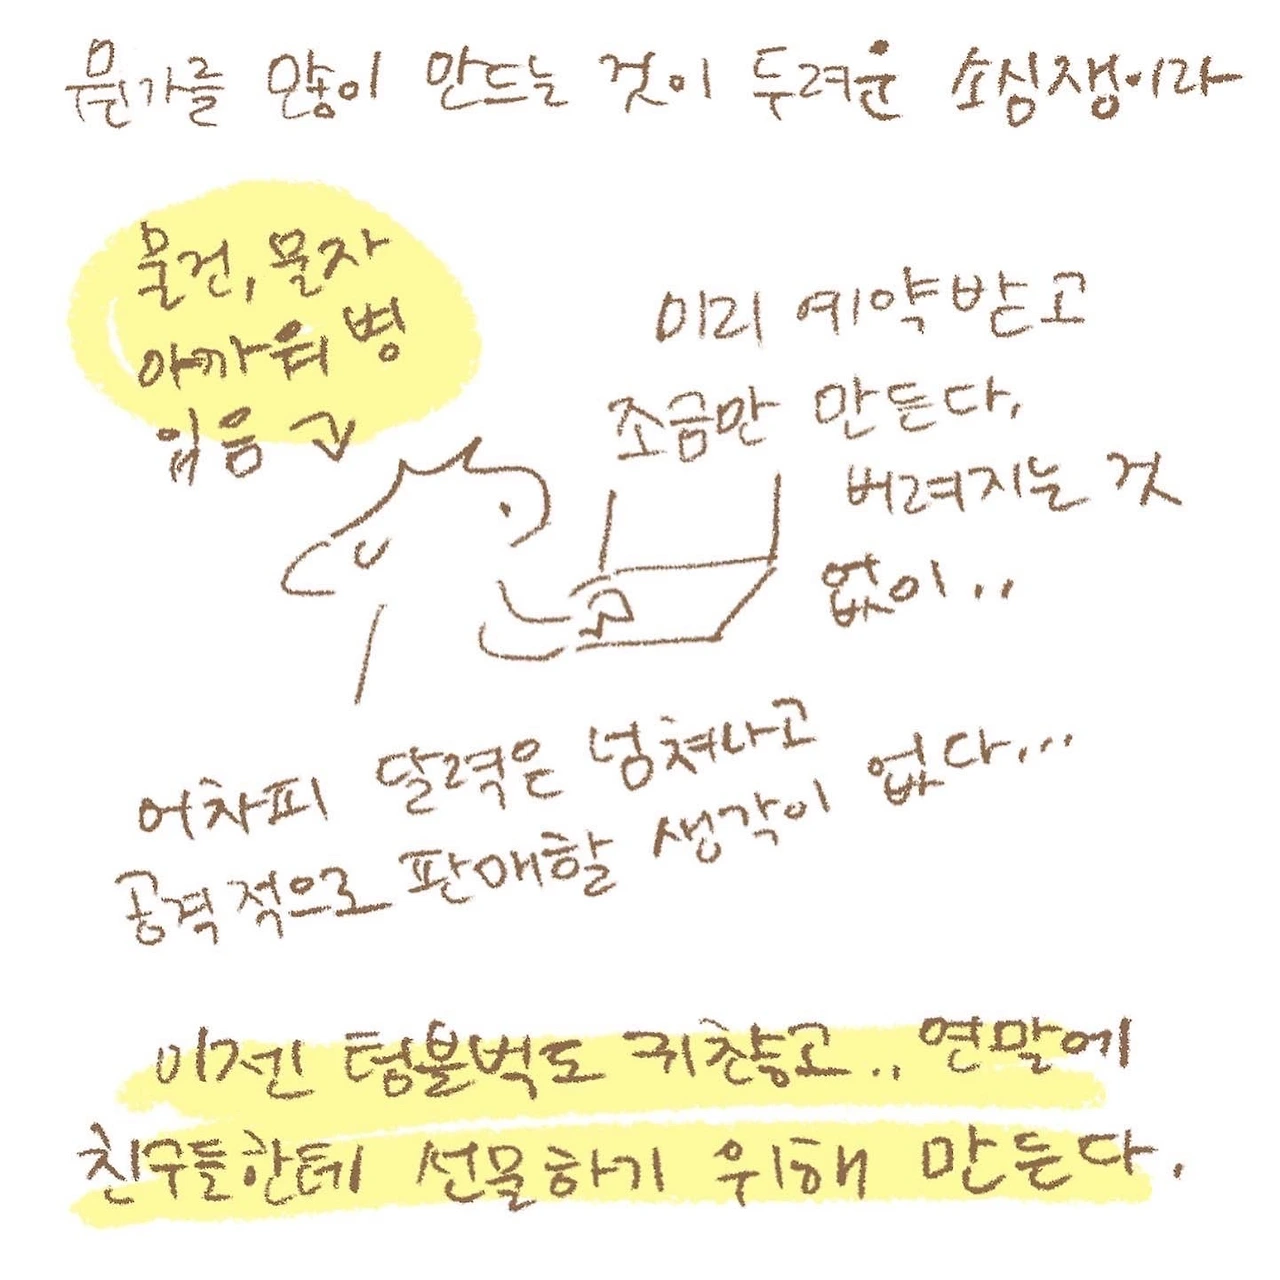 뭔가를 많이 만드는 것이 두려운 소심쟁이라
물건, 물자
아까워 병
있음
미리 예약받고
조금만 만든다.
버려지는 것
없이..
어차피 달력은 넘쳐나고
공격적으로 판매할 생각이 없다...
이젠 텀블벅도 귀찮고.. 연말에
친구들한테 선물하기 위해 만든다.